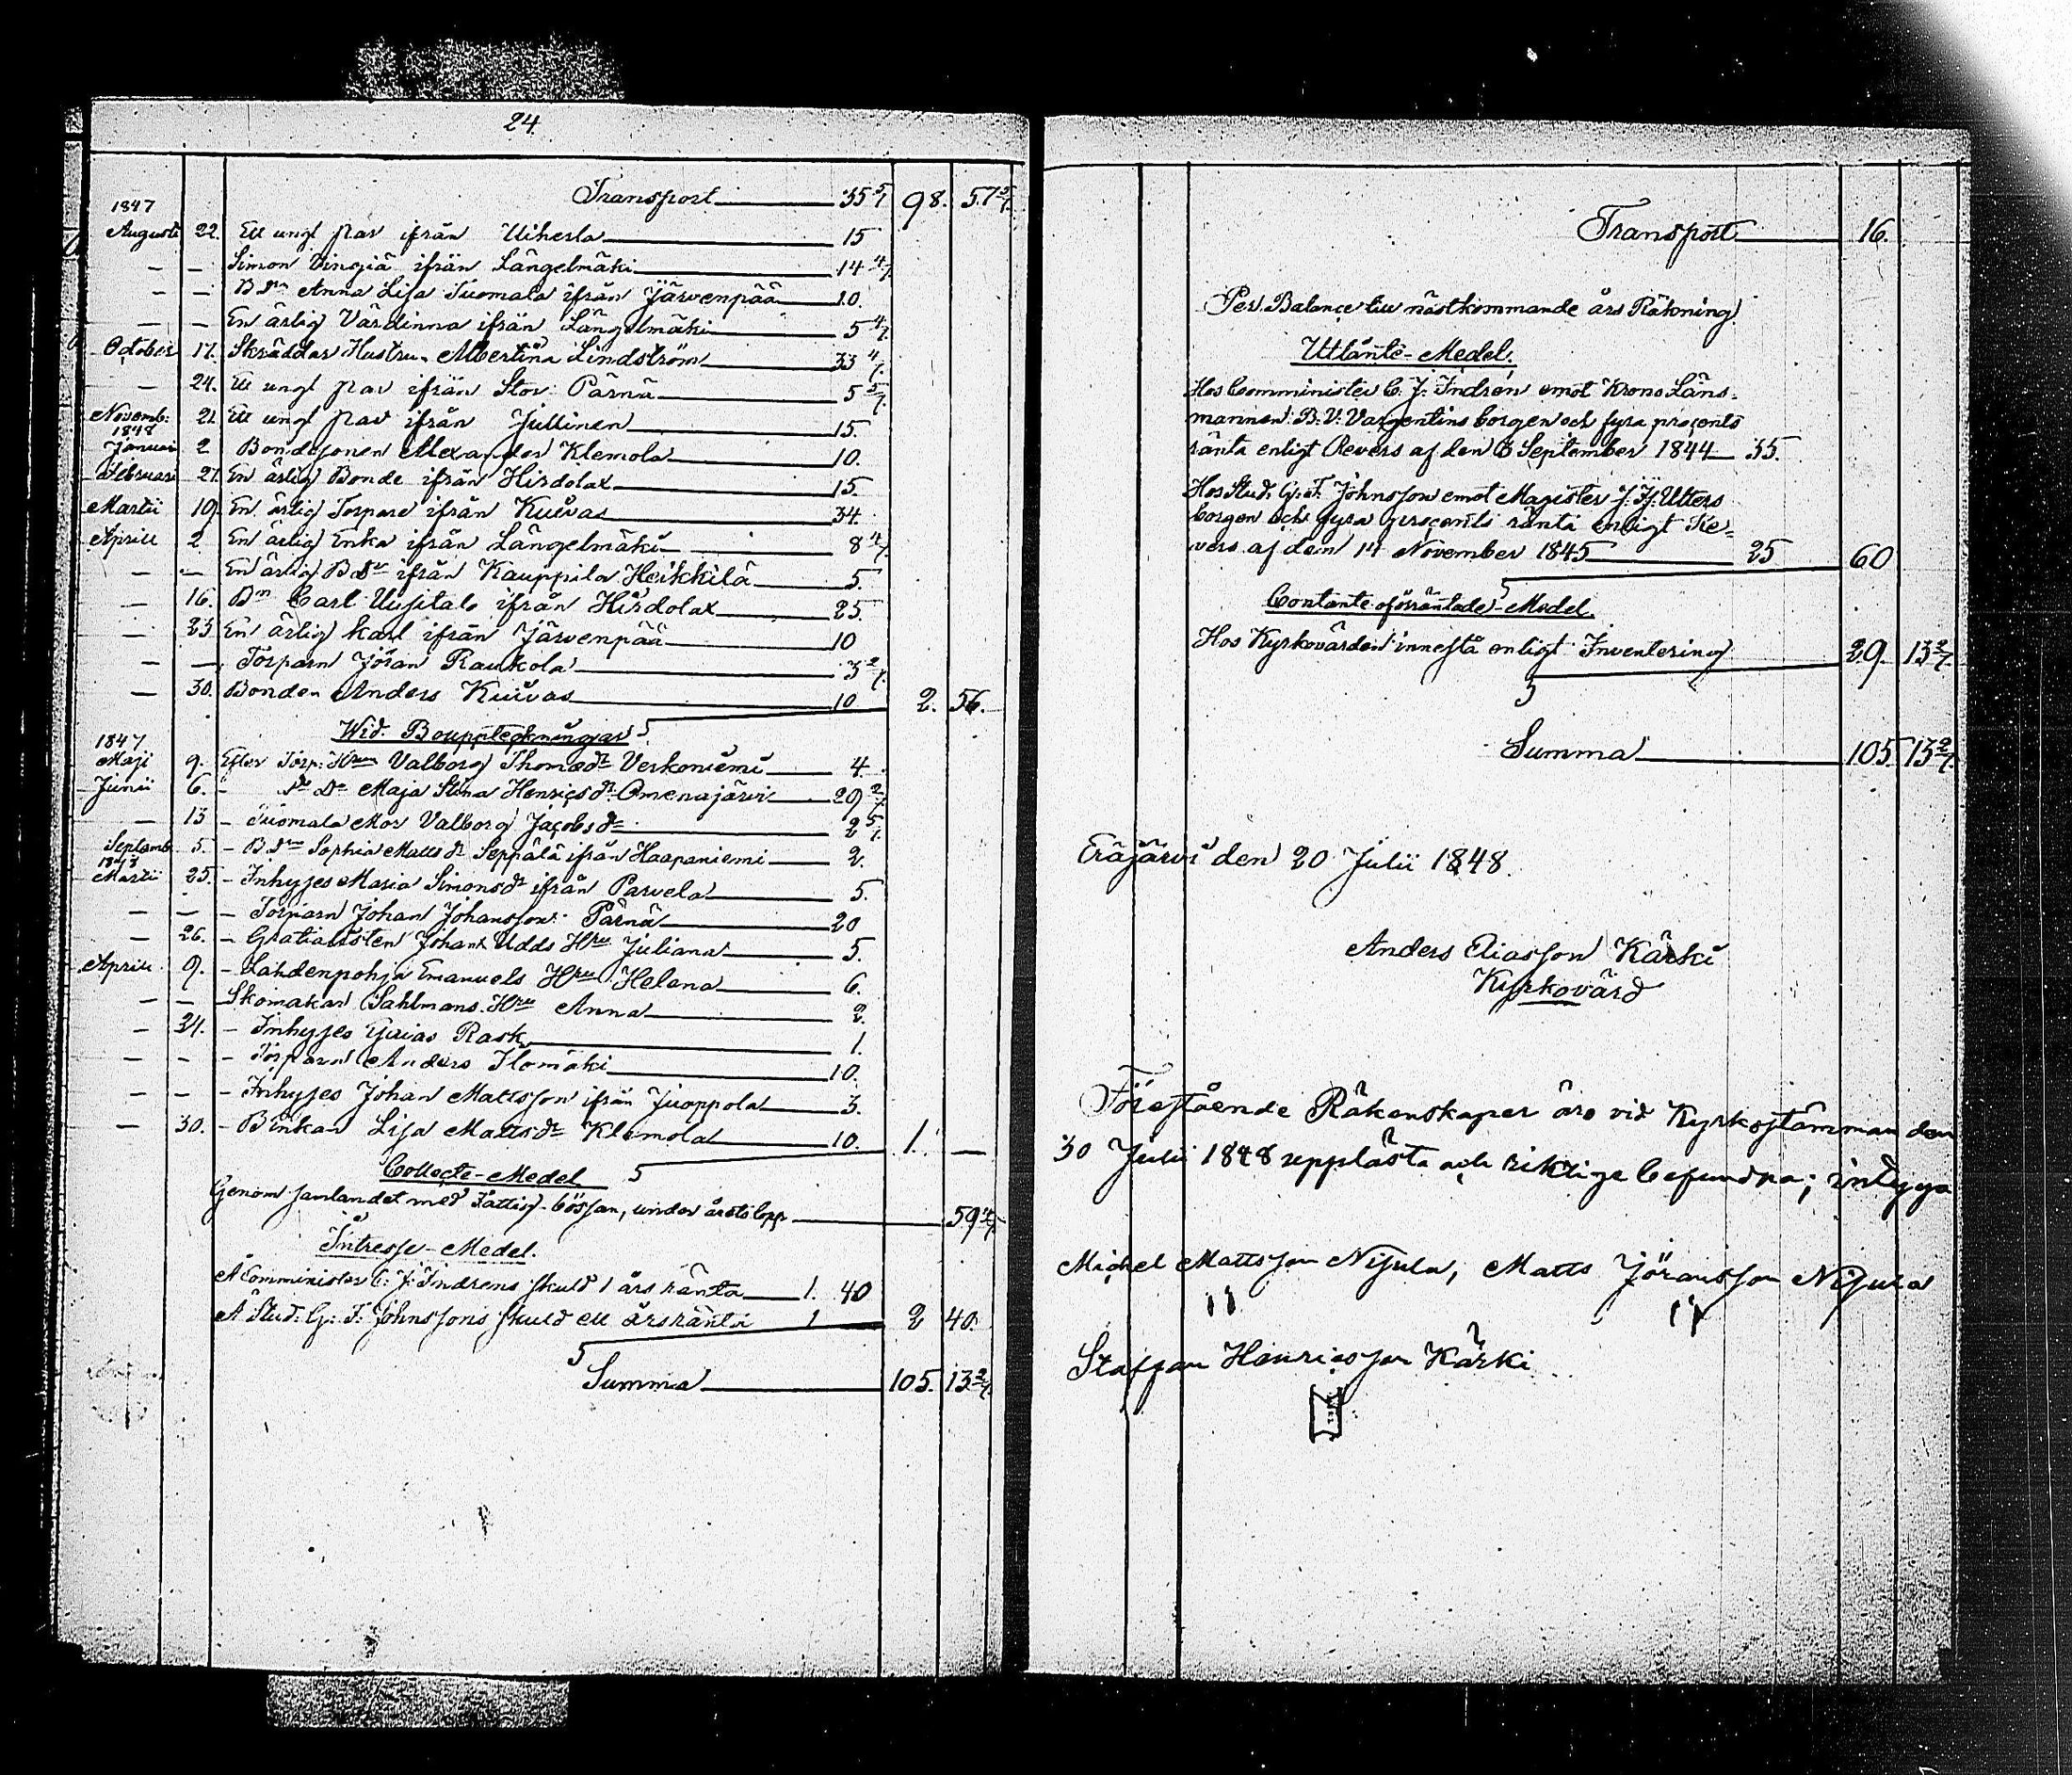 24.
Transport 35 5/7 98. 57 5/7.
1847
Augusti 22. Ett ungt par ifrån Uiherla 15
— — Simon Vinsiä ifrån Längelmäki 14 4/7.
— — B.dr Anna Lisa Tuomala ifrån Järvenpää 10.
— — En ärlig Värdinna ifrån Längelmäki 5 4/7.
October 17. Skräddar Hustru. Albertina Lindström 33 4/7.
— 24. Ett ungt par ifrån Stor Pärnä 5 5/7.
Novemb: 21. Ett ungt par ifrån Jullinen 15.
1848
Januari 2 Bondesonen Alexander Klemola 10.
Februari 21. En ärlig Bonde ifrån Hirdolax 15.
Martii 19. En ärlig Torpare ifrån Kuivas 34.
Aprill 2 En ärlig Enka ifrån Längelmäki 8 4/7.
— — En ärlig B.dr ifrån Kauppila Heikkilä 5.
— 16. B.n Carl Uusitalo ifrån Hirdolax 25.
— 23 En ärlig karl ifrån Järvenpää 10
— — Torparn Jöran Raukola 3 2/7.
— 30. Bonden Anders Kuivas 10 2. 56.
Wid Bouppteckningar
1847
Maji 9. Efter Torp: Hru Valborg Thomædr Verkoniemi 4.
Junii 6. - Dr Dr Maja Stina Henricsdr Omenajärvi 29 2/7.
— 13 - Tuomala Mor Valborg Jacobsdr 2 5/7.
Septemb. 5. - B.dr Sophia Mattsdr Seppälä ifrån Haapaniemi 2.
1848
Martii 25. - Inhyses Maria Simonsdr ifrån Parvela 5.
— — - Torparn Johan Johansson Pärnä 20
— 26. - Gratialisten Johan Udds Hru Juliana 5.
Aprill 9. - Lahdenpohja Emanuels Hru Helena 6.
— — Skomakar Sahlmans Hru Anna 2.
— 24. - Inhyses Gaias Rask 1.
— - - Torparn Anders Ilomäki 10.
— - - Inhyses Johan Mattsson ifrån Juoppola 3.
— 30. - B:enkan Lisa Mattsdr Klemola 10. 1. —
Collecte-Medel
Genom samlandet med Fattig-bössan, under årets lopp 59 4/7.
Intresse-Medel.
Å Comminister C. J. Indrens skuld 1 års ränta 1. 40
Å Stud. G: F. Johnssons skuld ett års ränta 1 2 40.
Summa 105. 13 2/7.
Transport 16.
Per Balance till nästkommande års Räkning.
Utlånte-Medel.
Hos Comminister C. J. Indrén emot Krono Läns-
mannen B. V. Vargentins borgen och fyra procents
ränta enligt Revers af den 8 September 1844 35.
Hos Stud. G: F. Johnsson emot Magister J. J. Utters
borgen och fyra procents ränta enligt Re-
vers af den 14 November 1845 25 60
Contante oförräntade-Medel.
Hos Kyrkovärden innestå enligt Inventering 29. 13 2/7.
Summa 105 13 2/7.
Eräjärvi den 20 Julii 1848.
Anders Eliasson Kärki
Kyrkovärd
Förestående Räkenskaper äro vid Kyrkostämman den
30 Julii 1848 upplästa och riktige befundna; intyga
Michel Mattsson Nisula, Matts Jöransson Nisula
Staffan Henricsson Kärki